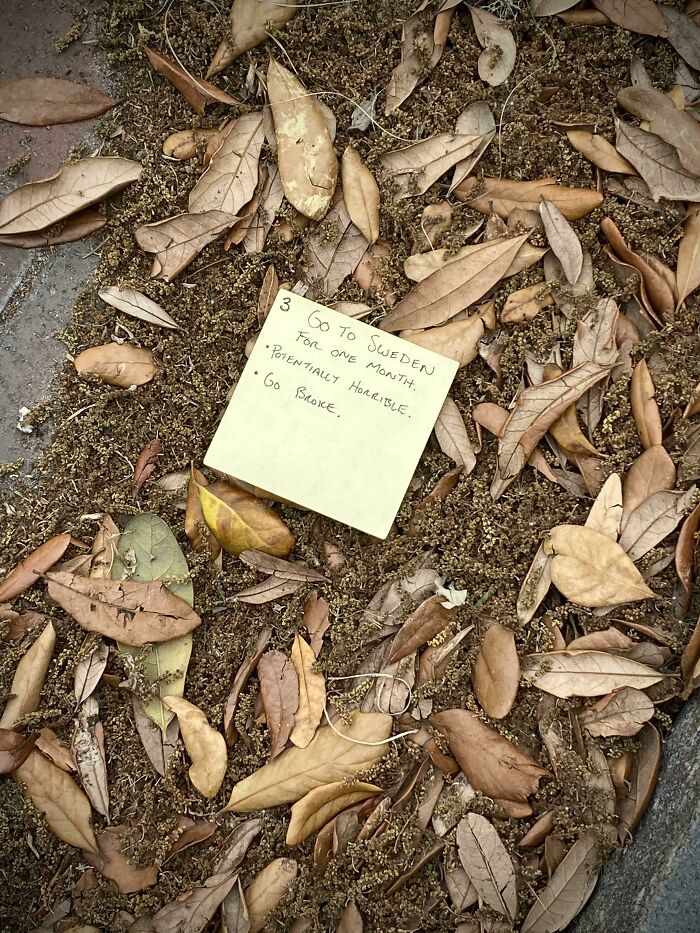 3 Go to Sweden
for one month.
• Potentially Horrible.
• Go Broke.